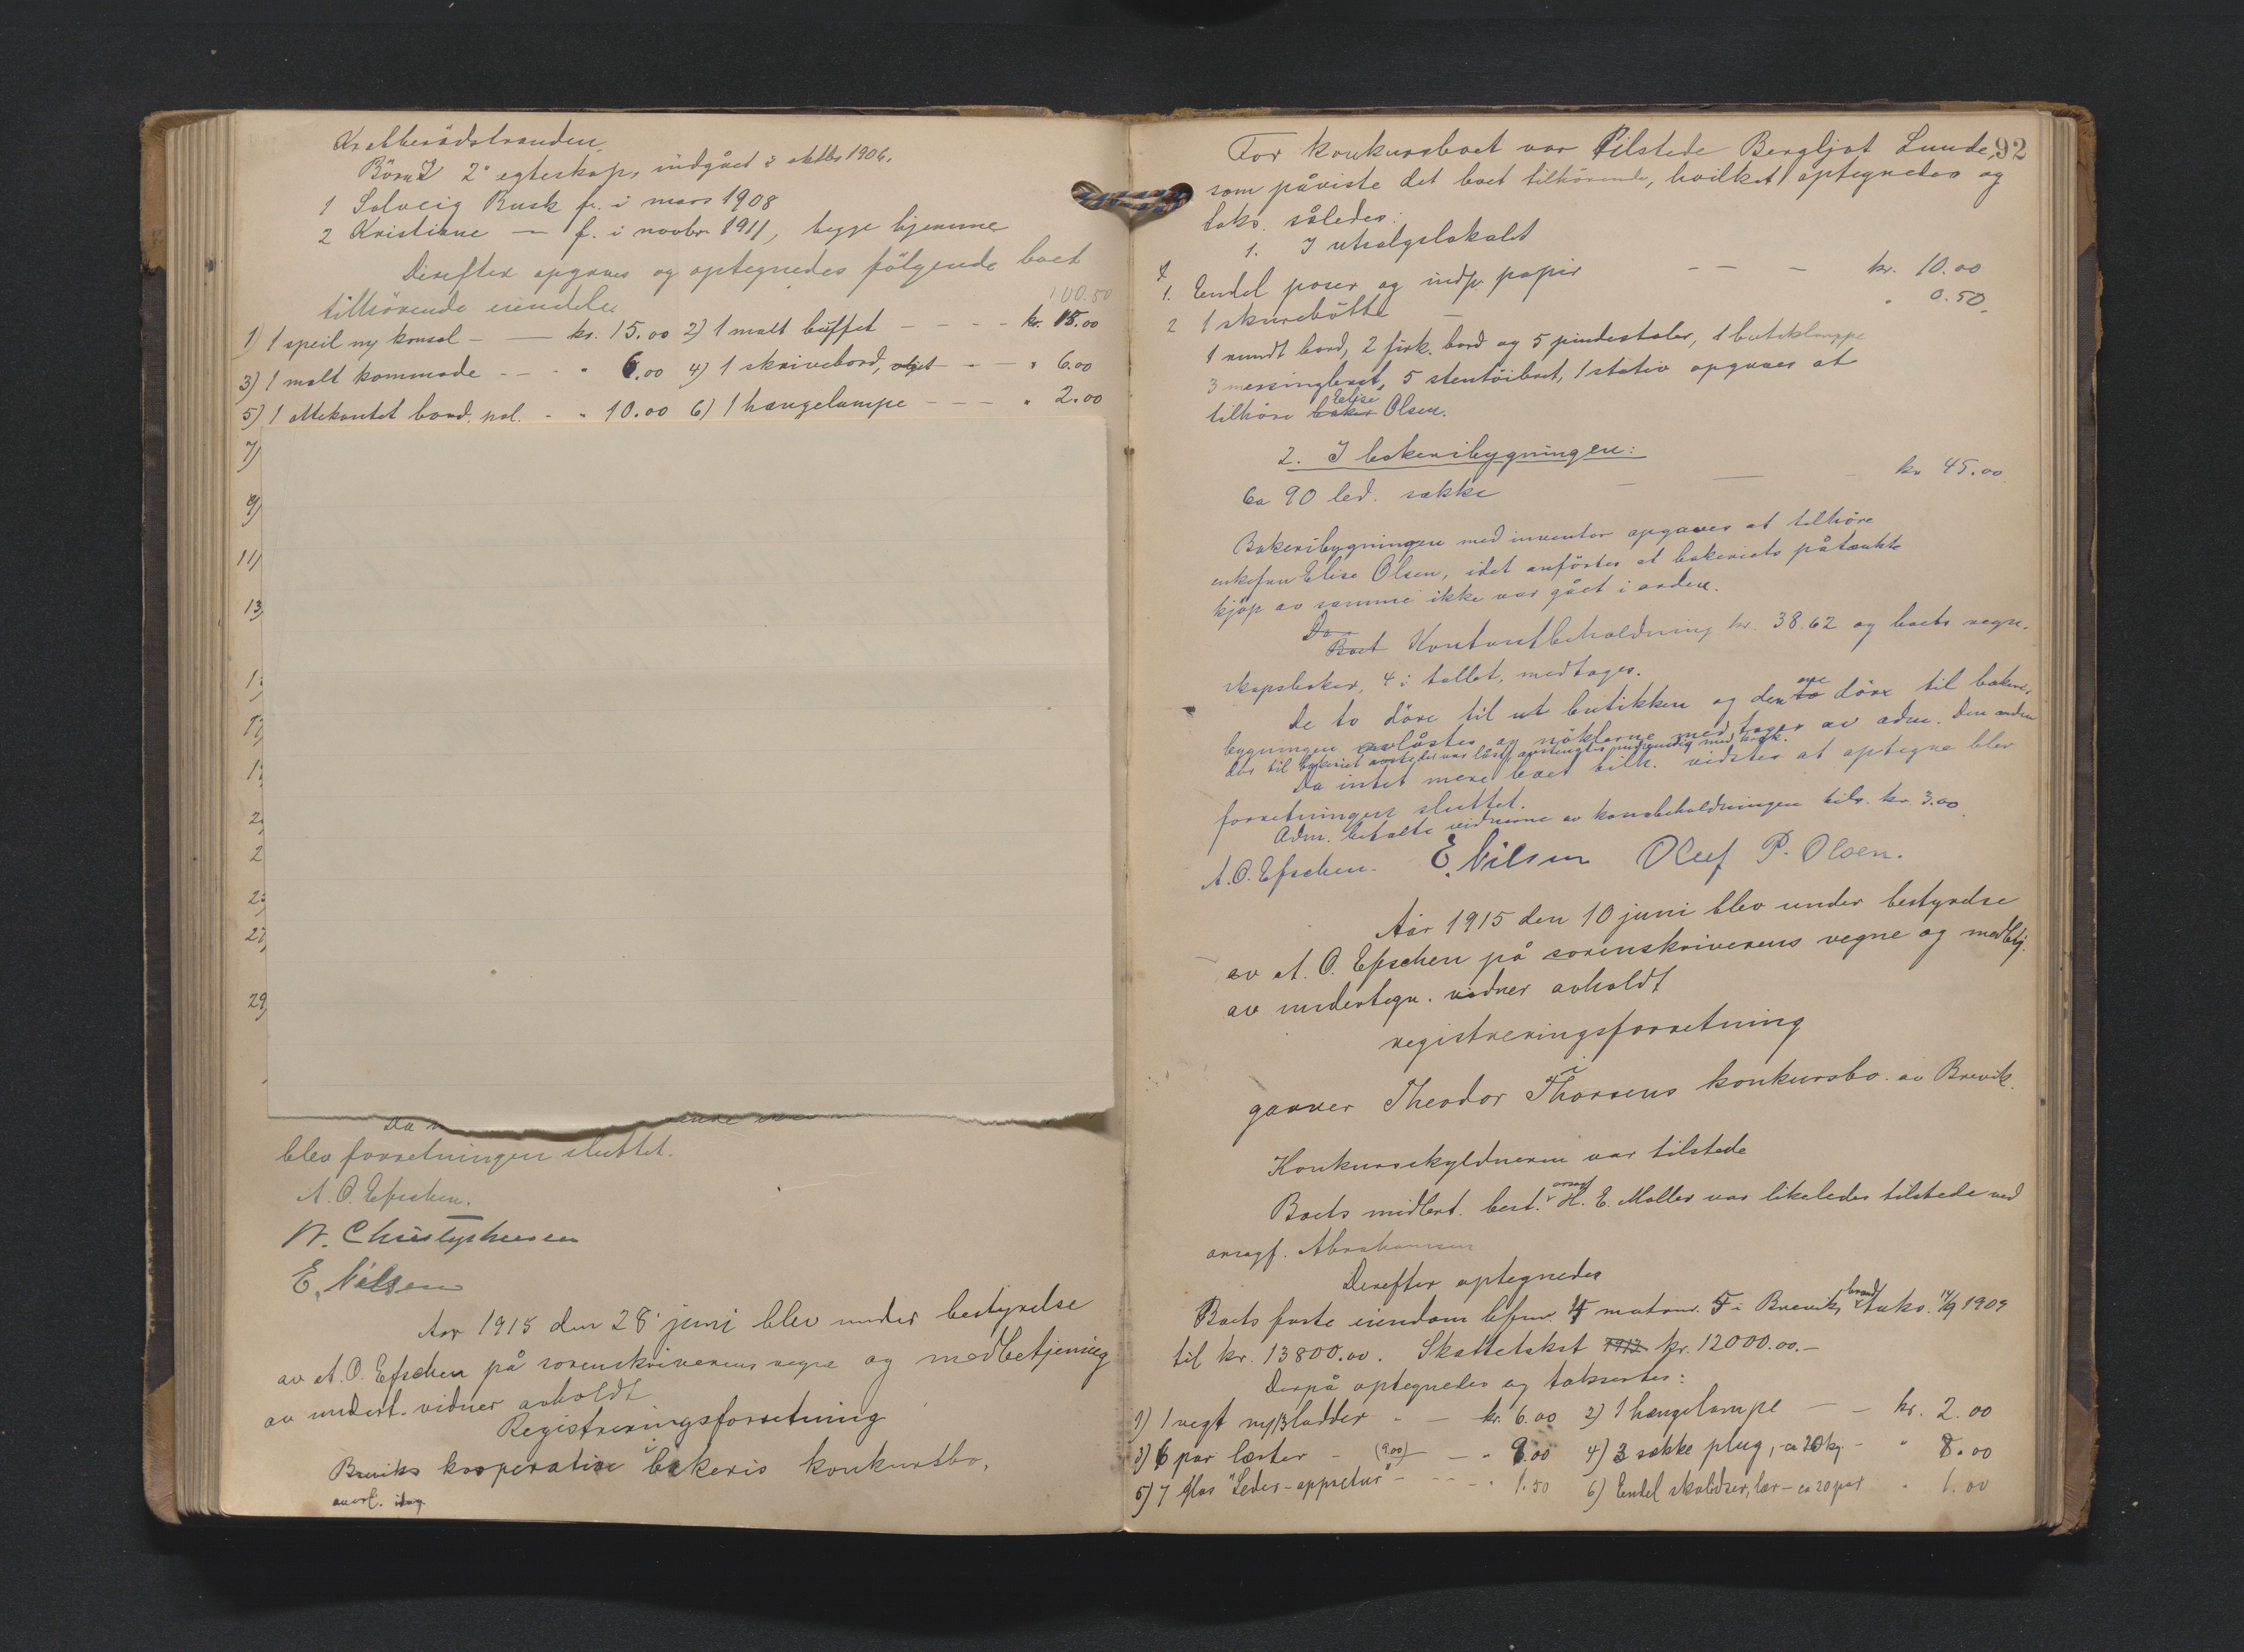 Krabberødstranden.
Börn I 2° egteskap, indgået 3 oktbr 1906.
1 Solveig Rusk f. i mars 1908
2 Kristiane — f. i novbr 1911, begge hjemme
Derefter opgaves og optegnedes følgende boet
tilhørende eiendele
100.50
1) 1 speil m/ konsol - — kr. 15.00 2) 1 malt buffet - - - - kr. 15.00
3) 1 malt kommode - - - " 6.00 4) 1 skrivebord, - - " 6.00
5) 1 ottekantet bord, pol. - " 10.00 6) 1 hængelampe - - - " 2.00
7)
9)
11)
13
1
17
1
2
2
23
27
29)
Da
blev forretningen sluttet.
A. O. Efschen.
N. Christophersen
E. Nilsen
Aar 1915 den 28 juni blev under bestyrelse
av A. O. Efschen på sorenskriverens vegne og medbetjening
av undert. vidner avholdt
Registreringsforretning
i
Breviks kooperative bakeris konkursbo,
overl. idag
92
For konkursboet var tilstede Bergljot Lunde,
som påviste det boet tilhørende, hvilket optegnedes og
taks. således:
1. I utsalgslokalet
1. Endel poser og indp. papir - - - kr. 10.00
2 1 skurebøtte - " 0.50
1 rundt bord, 2 firk. bord og 5 pindestoler, 1 butiklampe
3 messingbret, 5 stentøibret, 1 stativ opgaves at
Elise
tilhøre baker Olsen.
2. I bakeribygningen:
Ca 90 led. sække — — - kr 45.00
Bakeribygningen med inventar opgaves at tilhøre
enkefru Elise Olsen, idet anførtes at bakeriets påtænkte
kjøp av samme ikke var gået i orden.
Da
Boet Kontantbeholdning kr. 38.62 og boets regn-
skapsbøker, 4 i tallet, medtages.
De to døre til ut butikken og den ene to døre til bakeri-
bygningen avlåstes og nøklerne medtages av adm. Den anden
dør til bakeriet der var låst, avstengtes indvendig med krok.
Da intet mere boet tilh. vidstes at optegne blev
forretningen sluttet.
Adm. betalte vidnerne av kassabeholdningen tils. kr. 3.00
A. O. Efschen. E. Nilsen Oluf P. Olsen.
Aar 1915 den 10 juni blev under bestyrelse
av A. O. Efschen på sorenskriverens vegne og medbtj.
av undertegn. vidner avholdt
registreringsforretning
i
garver Theodor Thorsens konkursbo av Brevik.
Konkursskyldneren var tilstede
Boets midlert. best. H. E. Møller var likeledes tilstede ved
orsagf. Abrahamsen
Derefter optegnedes
Boets faste eiendom 4 matr.nr. 5 i Brevik, brandtaks. 14/9 1909
til kr. 13800.00. Skattetakst 1912 kr. 12000.00.-
Derpå optegnedes og taksertes:
1) 1 vegt m/3 lodder - — kr. 6.00 2) 1 hængelampe — - kr. 2.00
3) 6 par læster - (9.00) — " 9.00 4) 3 sække plug, ca 20 kg - " 8.00
5) 7 glas "Leder-appretur" - - - - " 1.50 6) Endel skolidser, lær - ca 20 par " 1.00